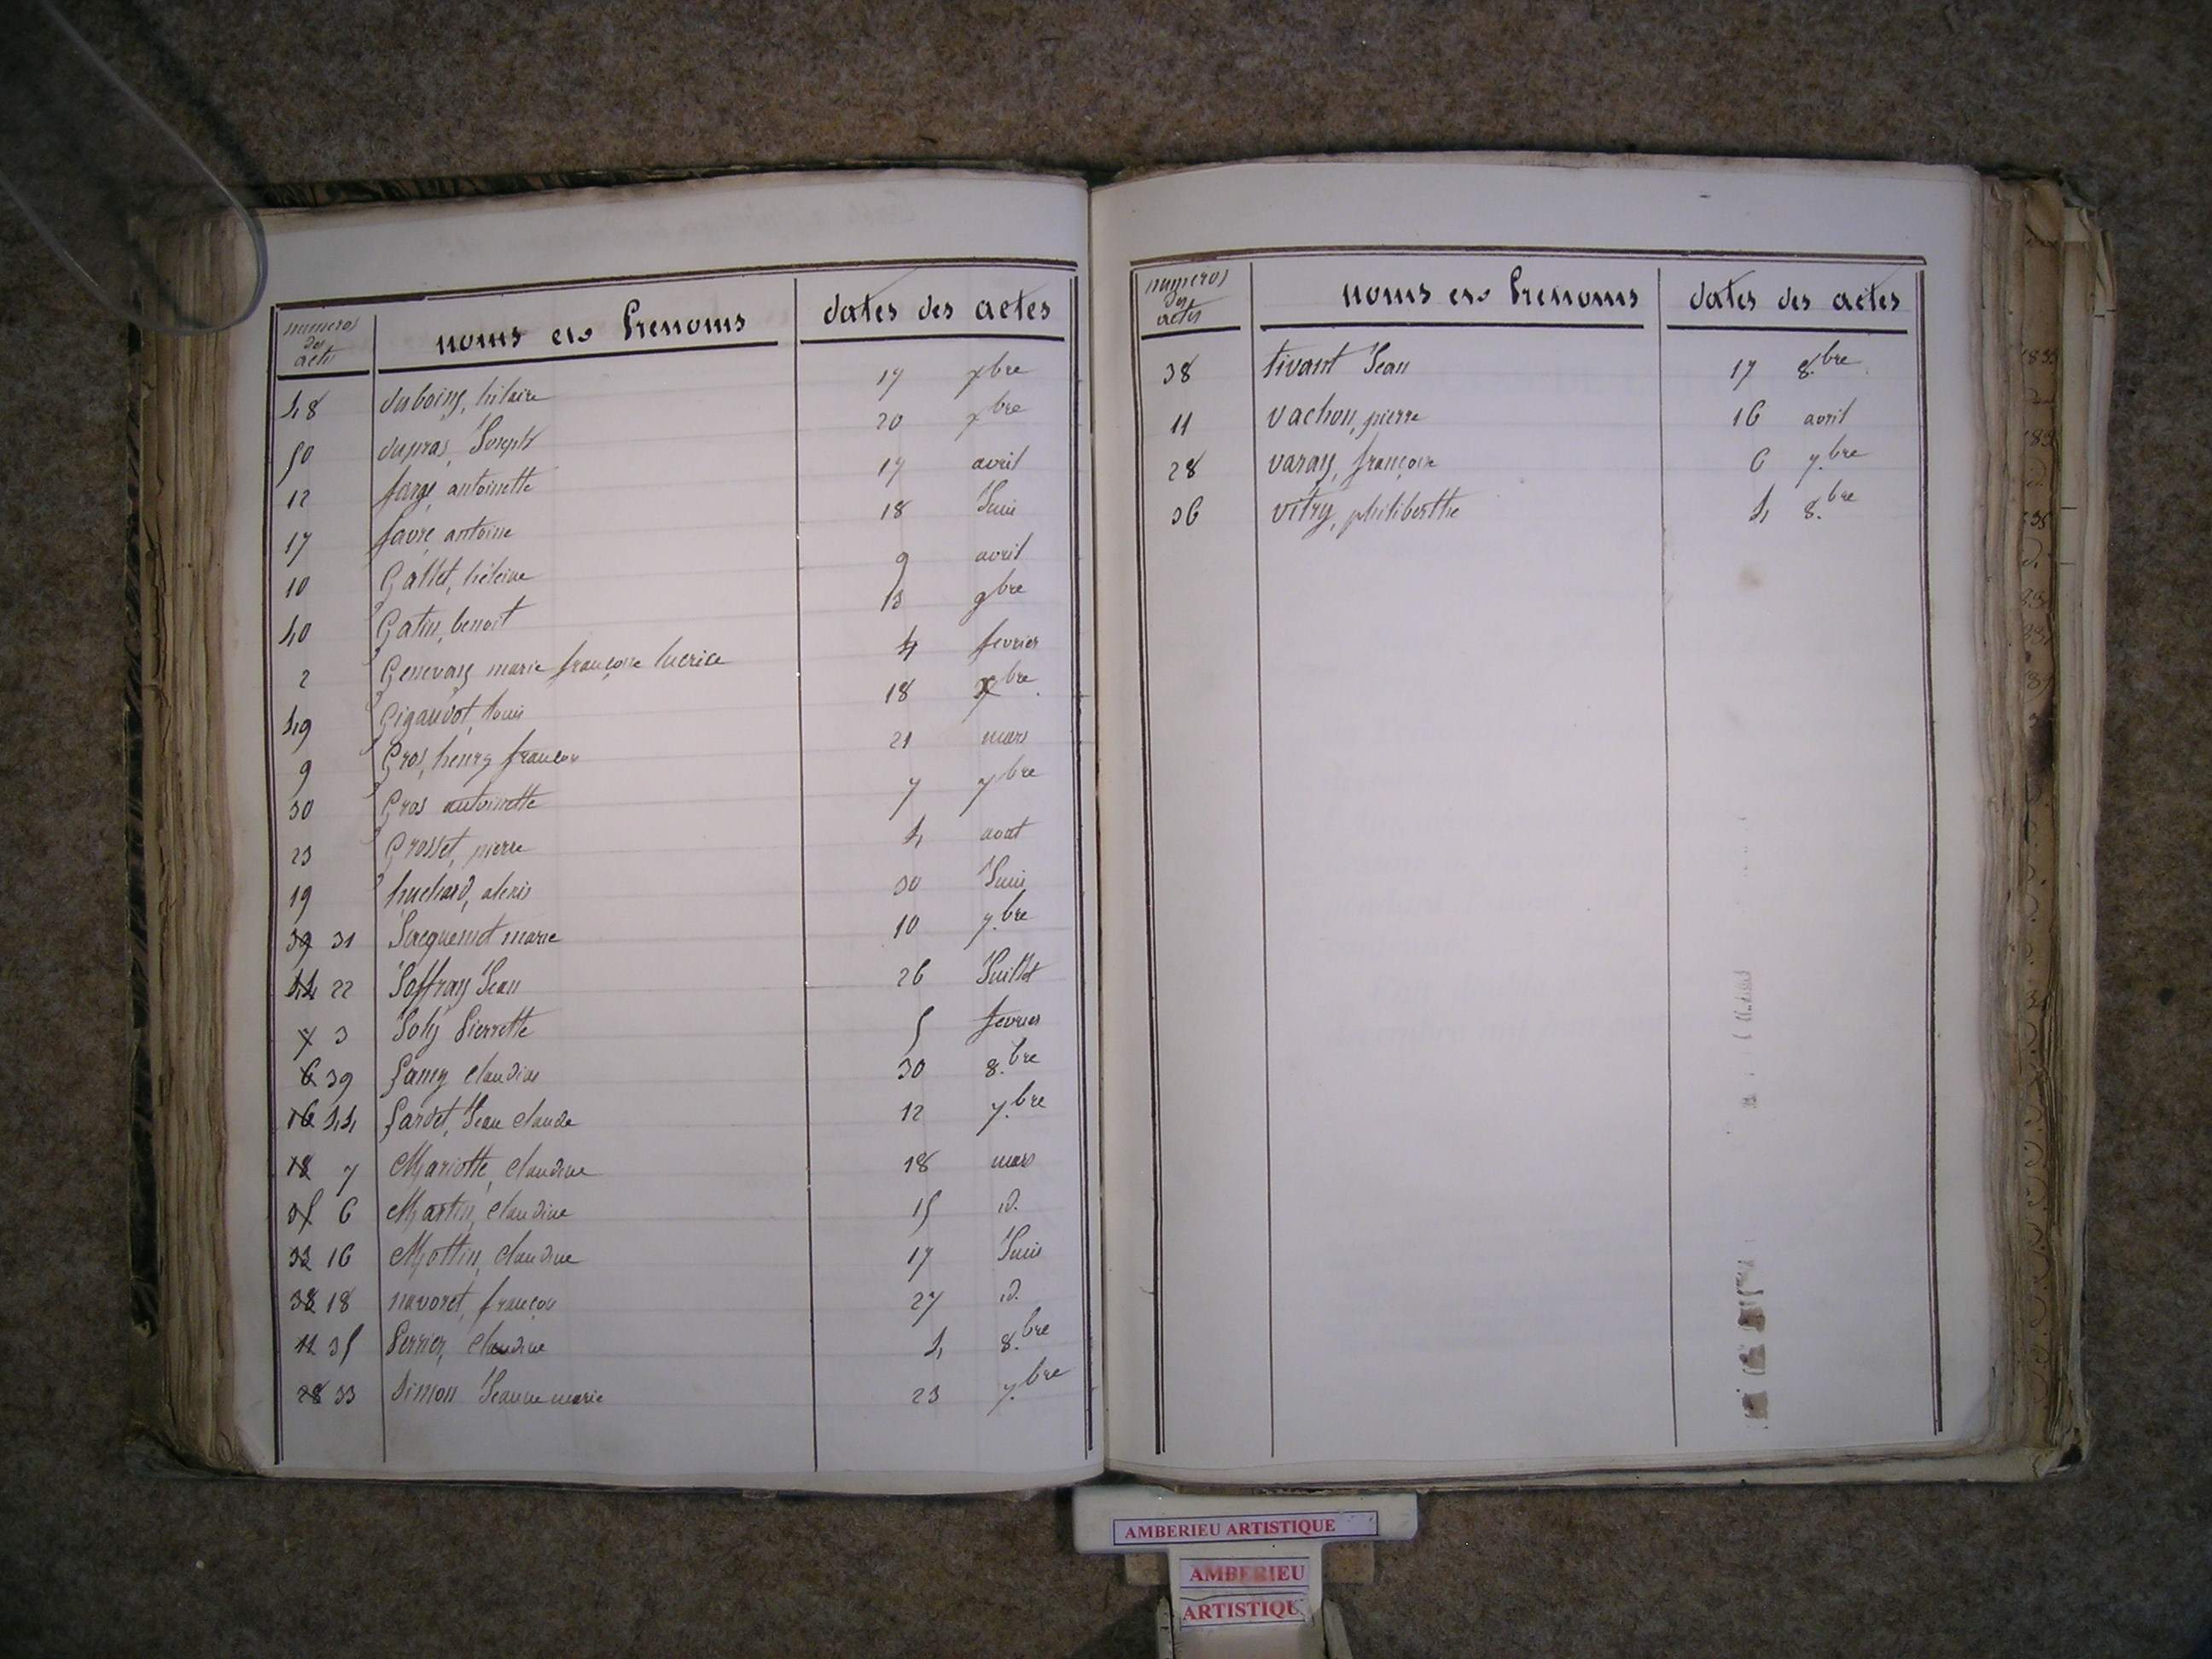 numeros des actes noms et Prenoms dates des actes
48 duboing, hilaire 17 xbre
50 dupras, Joseph 20 xbre
12 farge antoinette 17 avril
17 favre antoine 18 Juin
10 Gallet, héleine 9 avril
40 Gatin, benoit 13 9bre
2 Genevay marie françoise lucrice 4 fevrier
49 Gigaudot, louis 18 xbre.
9 Gros, henry françois 21 mars
30 Gros antoinette 7 7bre
23 Grosset, pierre 4 aout
19 huchard, alexis 30 Juin
39 31 Jacquemet marie 10 7.bre
44 22 Joffray Jean 26 Juillet
7 3 Joly Pierrette 5 fevrier
6 39 Lamy Claudine 30 8.bre
16 44 Lardet, Jean Claude 12 7.bre
18 7 Mariotte, Claudine 18 mars
35 6 Martin, Claudine 15 id.
33 16 Mottin, Claudine 17 Juin
38 18 navoret, françois 27 id.
11 35 Perrier, Claudine 4 8.bre
28 33 Simon Jeanne marie 23 7.bre
numeros des actes noms et Prenoms dates des actes
38 tivant Jean 17 8.bre
11 Vachon, pierre 16 avril
28 Varay, françoise 6 7.bre
36 Vitry, philiberthe 4 8.bre
AMBERIEU ARTISTIQUE
AMBERIEU
ARTISTIQU